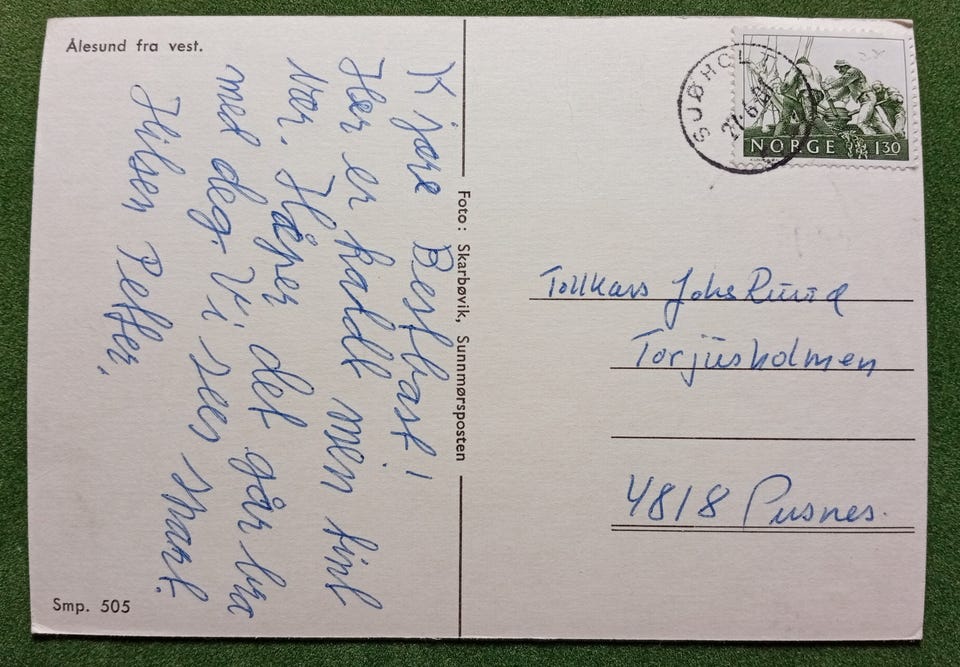 Ålesund fra vest.
Kjære Bestfast!
Her er kaldt men fint
vær. Hæper det går bra
med deg. Vi sees snart.
Hilsen Petter.
Foto: Skarbøvik, Sunnmørsposten
Smp. 505
SJØHOLT
27.6.81
NORGE 130
Johs
Torjusholmen
4818 Pusnes.